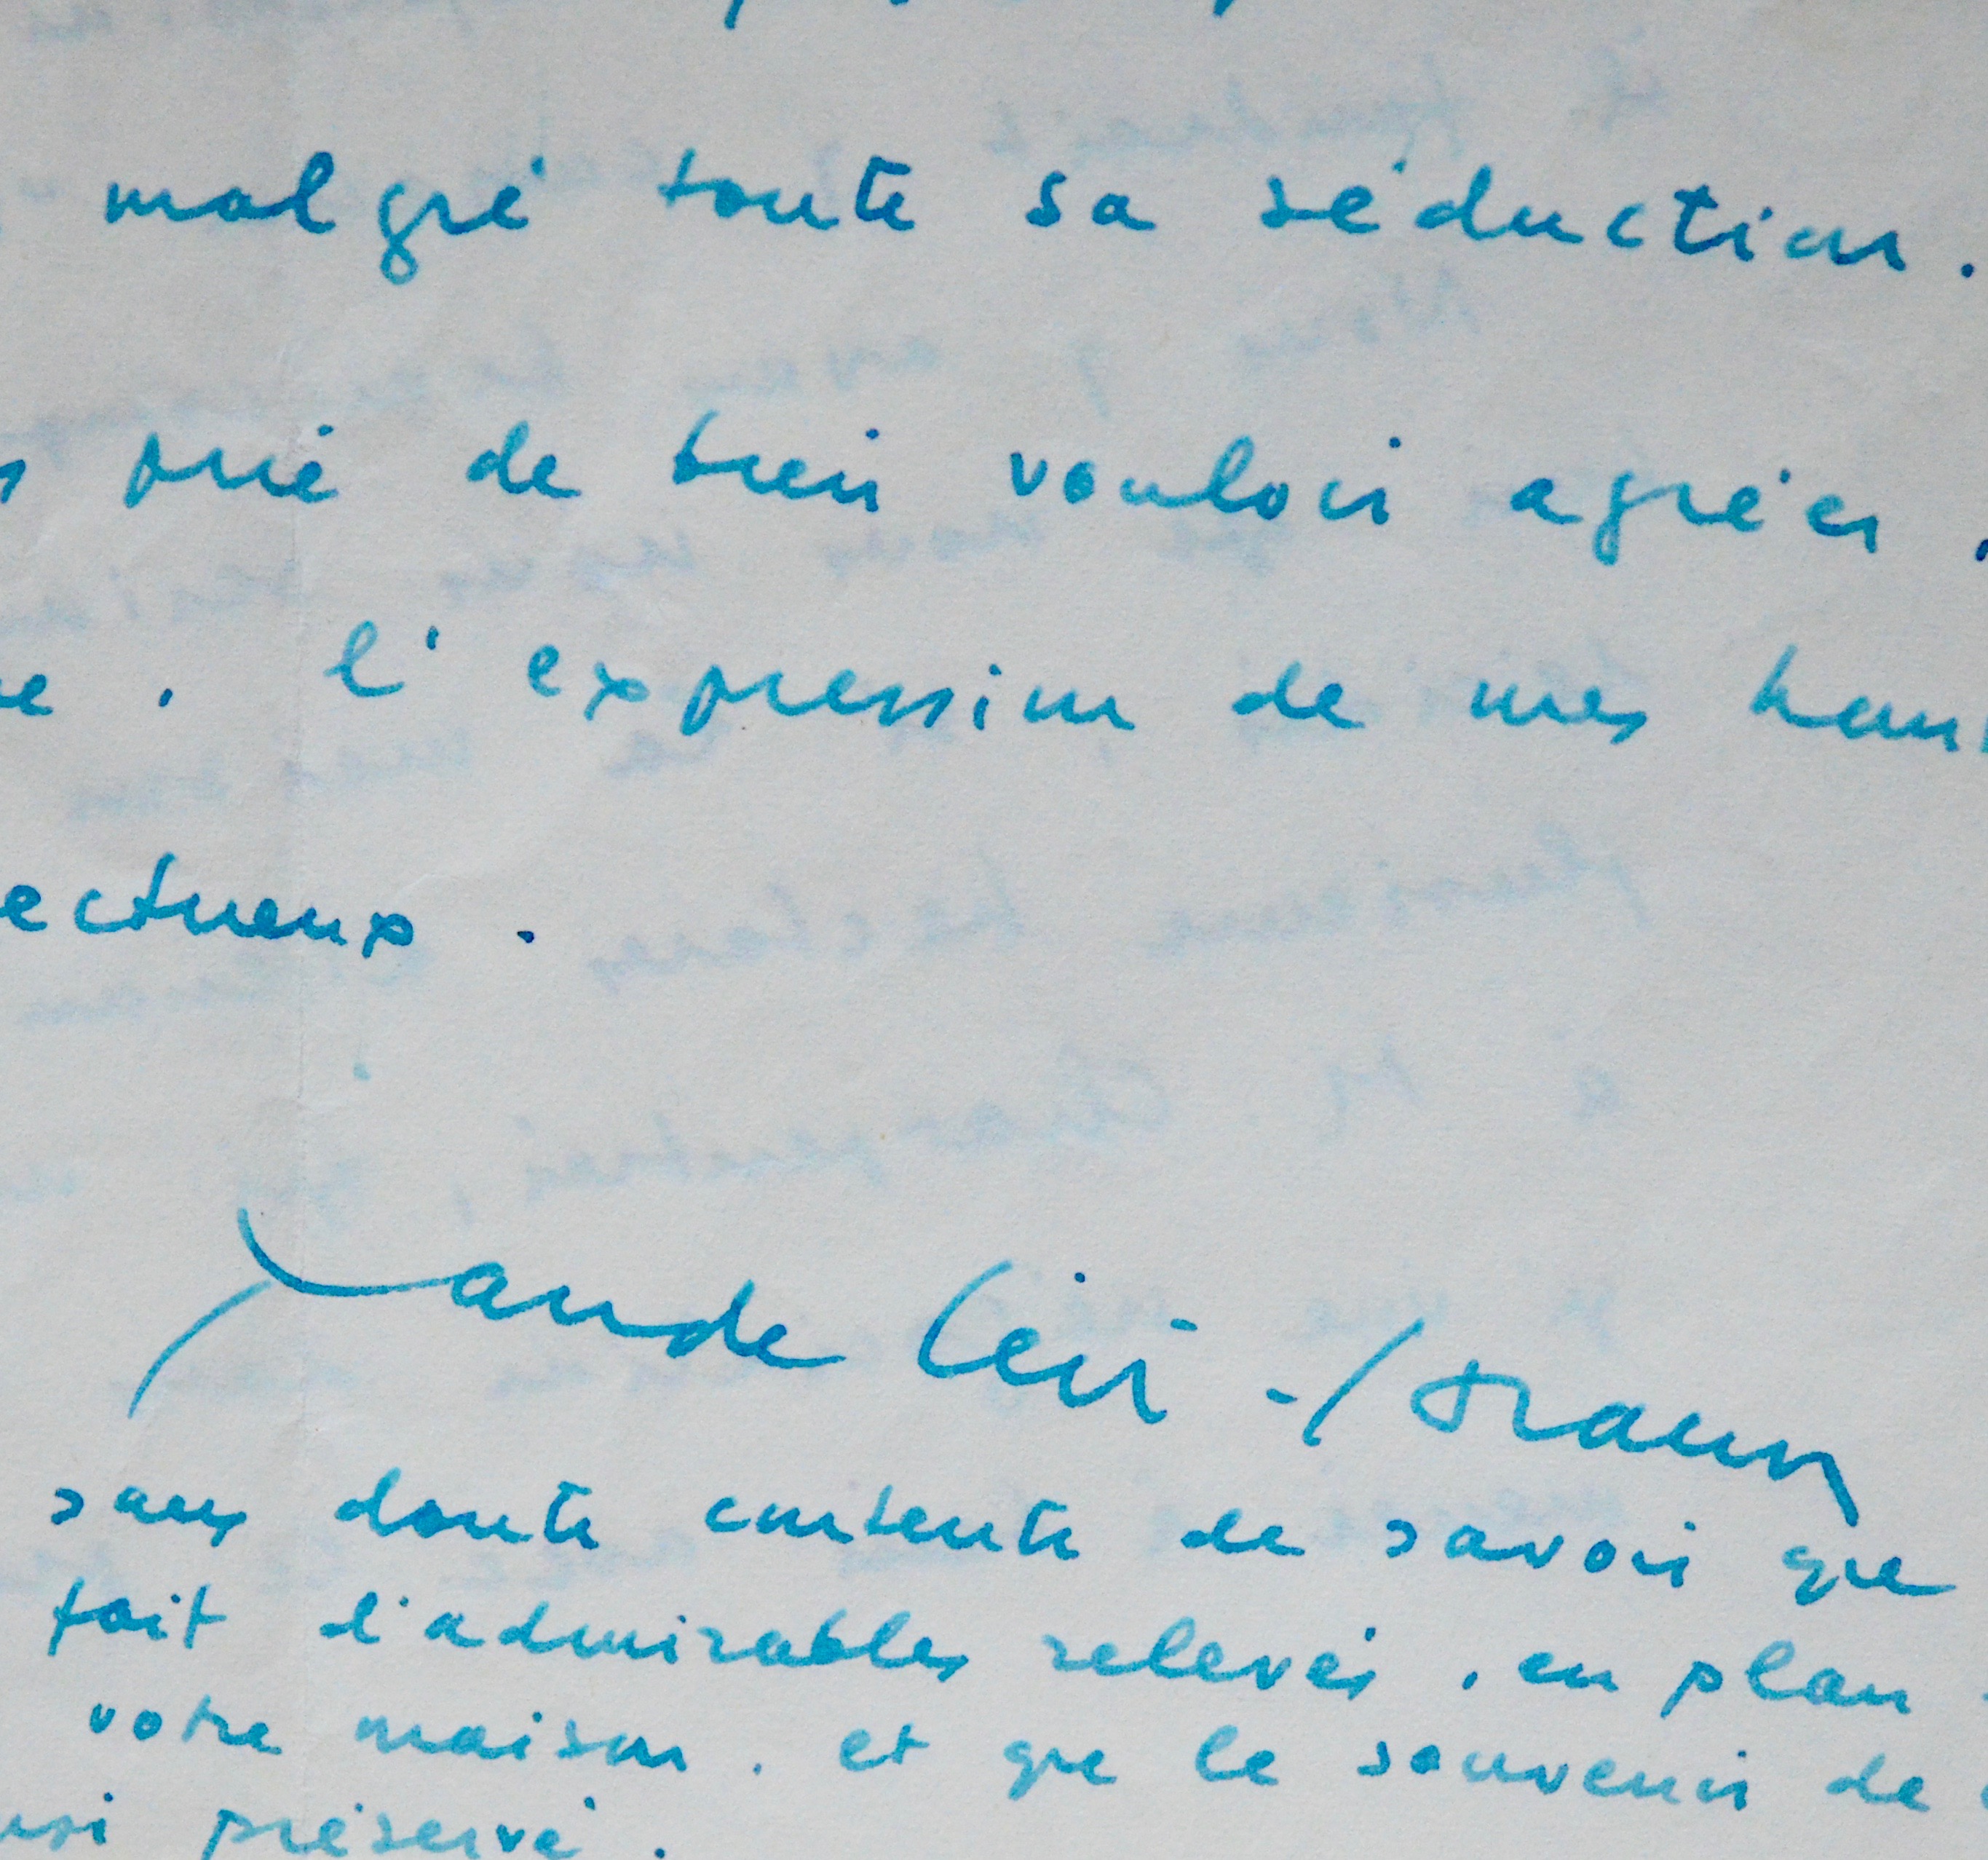 malgré toute sa séduction.
prie de bien vouloir agréer,
l'expression de mes
ectueux.
Claude Lévi-Strauss
sans doute contente de savoir que
fait d'admirables relevés, en plan
votre maison, et que le souvenir de
préservé.